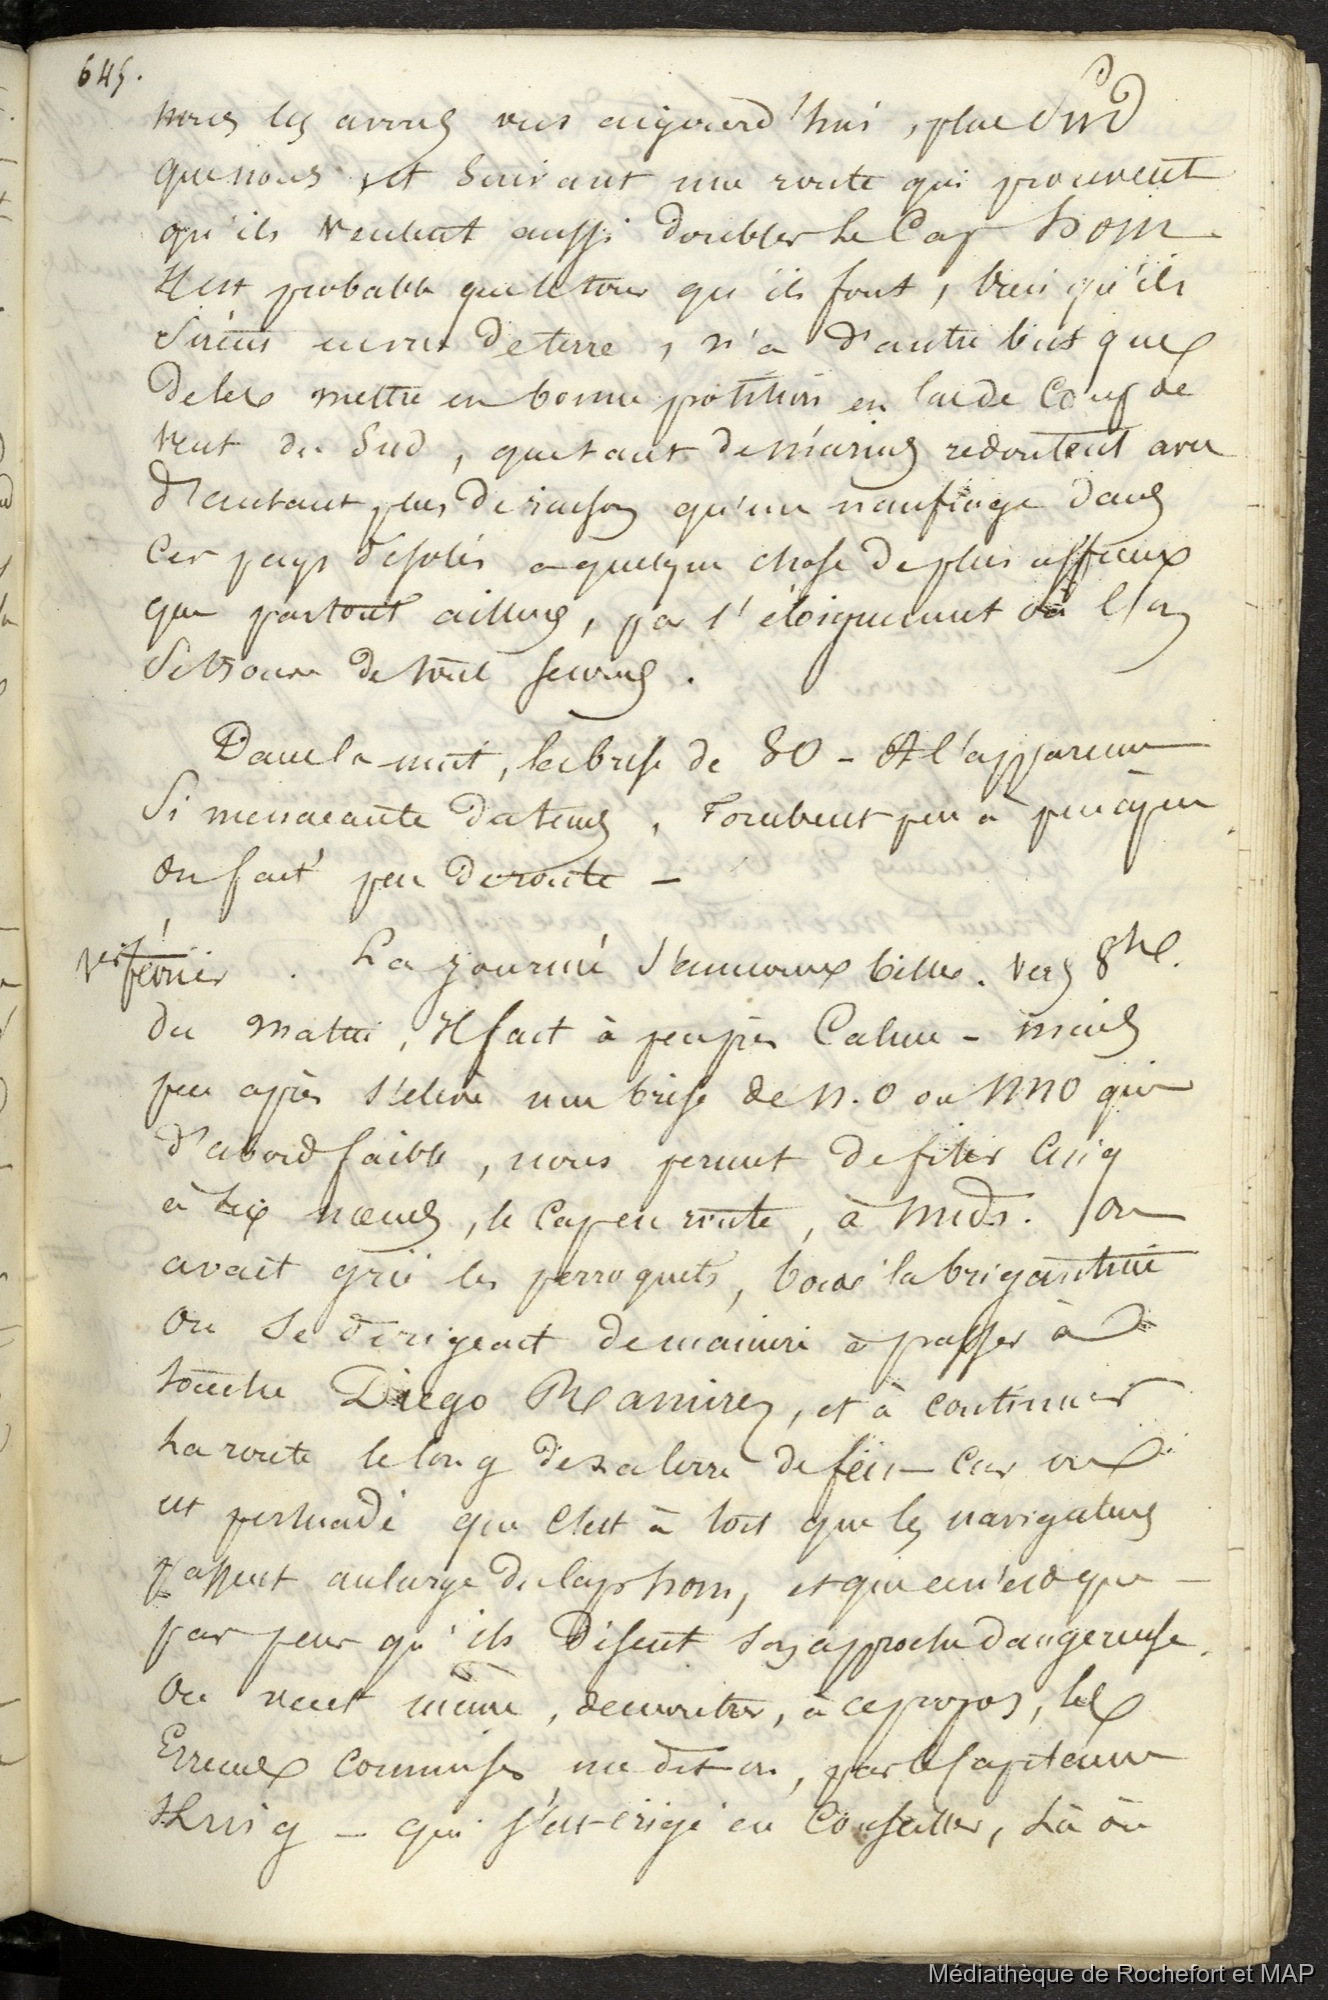 645.
nous les avons vus aujourd'hui, plus Sud
que nous, et suivant une route qui prouvent
qu'ils veulent aussi doubler le Cap horn
Il est probable que le tour qu'ils font, bien qu'ils
en vue de terre, n'a d'autre but que
de les mettre en bonne position en cas de coup de
vent du Sud, que tant de marins redoutent avec
d'autant plus de raison qu'un naufrage dans
ces pays désolés a quelque chose de plus affreux
que partout ailleurs, par l'éloignement où l'on
se trouve de tout secours.
Dans la nuit, la brise de SO - Et l'apparence
si menaçante du tems, tombent peu à peu
on fait peu de route -
1er février. La journée s'annonce belle. vers 8he.
du matin, Il fait à peu près Calme - mais
peu après s'élève une brise de N.O ou NNO qui
d'abord faible, nous permet de filer cinq
à six nœuds, le cap en route, à midi. on
avait gréé les perroquets, bordé la brigantine
on se dirigeait de manière à passer à
touche Diego Ramirez, et à continuer
la route le long de la terre de feu - Car on
est persuadé que c'est à tort que les navigateurs
passent au large du Cap horn, et que ce n'est que
par peur qu'ils disent son approche dangereuse.
On veut même, démontrer, à ce propos, les
Erreurs commises me dit-on, par le Capitaine
King - qui s'est érigé en Conseiller, là où
Médiathèque de Rochefort et MAP